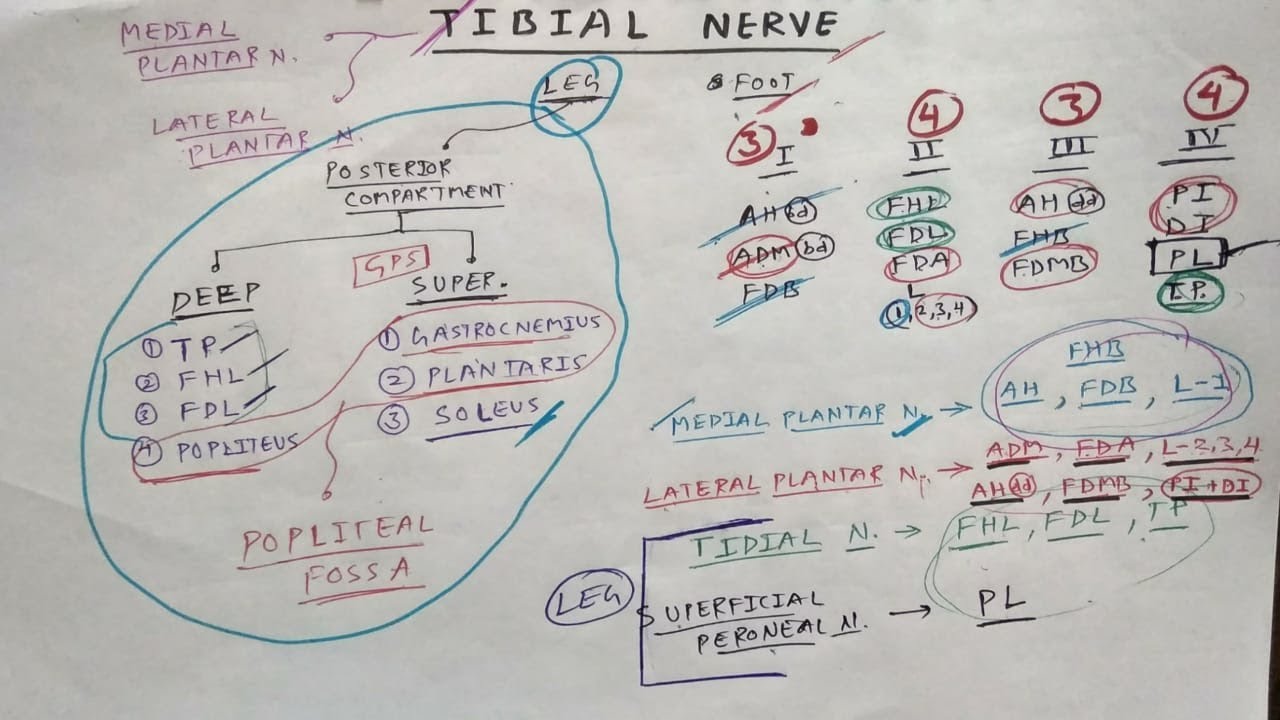 TIBIAL NERVE
MEDIAL
PLANTAR N.
LATERAL
PLANTAR N.
LEG
POSTERIOR
COMPARTMENT
GPS
DEEP
① TP
② FHL
③ FDL
④ POPLITEUS
SUPER.
① GASTROCNEMIUS
② PLANTARIS
③ SOLEUS
POPLITEAL
FOSSA
FOOT
③ ④ ③ ④
I II III IV
AH bd FHL AH dd PI
DI
ADM bd FDL FHB PL
FDB FDA FDMB T.P.
L
1,2,3,4
FHB
MEDIAL PLANTAR N. → AH, FDB, L-1
LATERAL PLANTAR N. → ADM, FDA, L-2,3,4
AH dd, FDMB, PI+DI
TIDIAL N. → FHL, FDL, TP
LEG
SUPERFICIAL
PERONEAL N. → PL